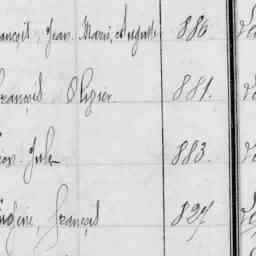 ançois, Jean Marie, Auguste 880
François Olivier 881.
ion Jules 883.
Eugène, François 827